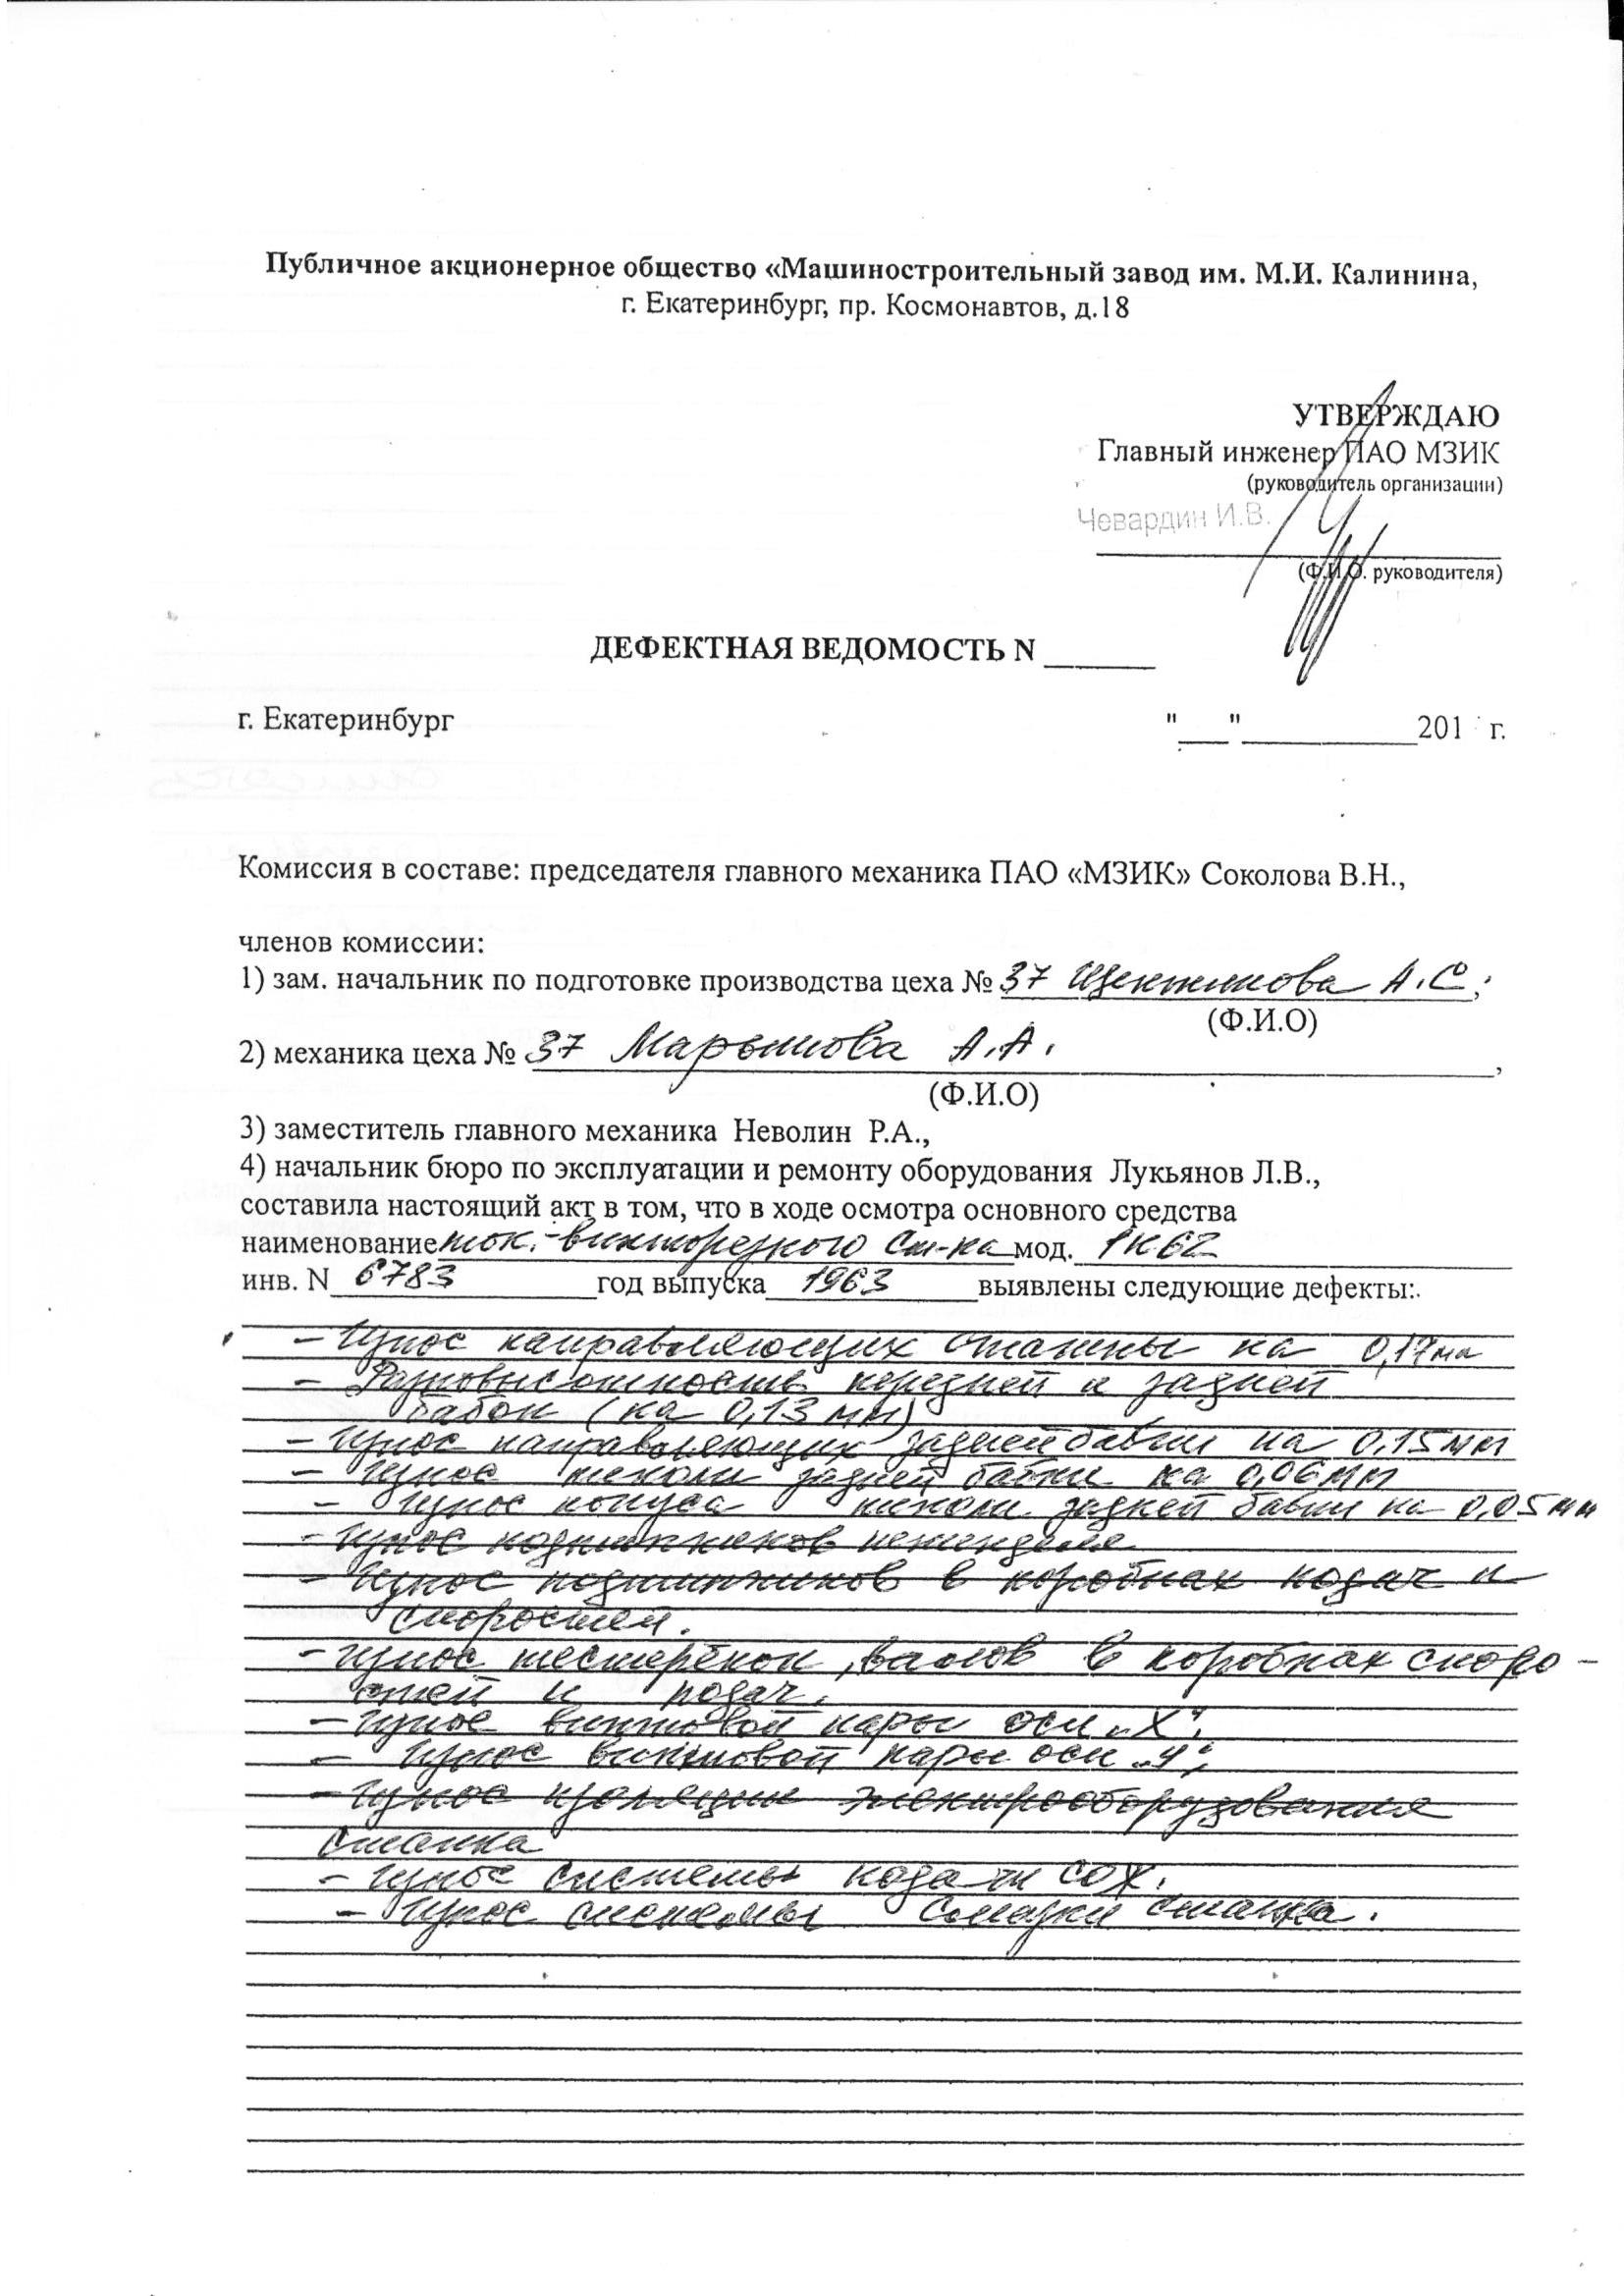 Публичное акционерное общество «Машиностроительный завод им. М.И. Калинина,
г. Екатеринбург, пр. Космонавтов, д.18
УТВЕРЖДАЮ
Главный инженер ПАО МЗИК
(руководитель организации)
Чевардин И.В.
(Ф.И.О. руководителя)
ДЕФЕКТНАЯ ВЕДОМОСТЬ N ______
г. Екатеринбург "___"___________201 г.
Комиссия в составе: председателя главного механика ПАО «МЗИК» Соколова В.Н.,
членов комиссии:
1) зам. начальник по подготовке производства цеха № 37 А.С.,
(Ф.И.О)
2) механика цеха № 37 А.А.,
(Ф.И.О)
3) заместитель главного механика Неволин Р.А.,
4) начальник бюро по эксплуатации и ремонту оборудования Лукьянов Л.В.,
составила настоящий акт в том, что в ходе осмотра основного средства
наименование ток.-винторезного ст-ка мод. 1К62
инв. N 6783 год выпуска 1963 выявлены следующие дефекты:
- Износ направляющих станины на мм
- Разновысотность передней и задней
бабок (на 0,13 мм)
- Износ направляющих задней бабки на 0,15 мм
- Износ пиноли задней бабки на 0,06 мм
- Износ конуса пиноли задней бабки на 0,05 мм
- Износ подшипников шпинделя
- Износ подшипников в коробках подач и
скоростей.
- Износ шестерёнок, валов в коробках скоро-
стей и подач.
- Износ винтовой пары оси „Х".
- Износ винтовой пары оси „У".
- Износ изоляции электрооборудования
станка
- Износ системы подачи СОЖ.
- Износ системы смазки станка.